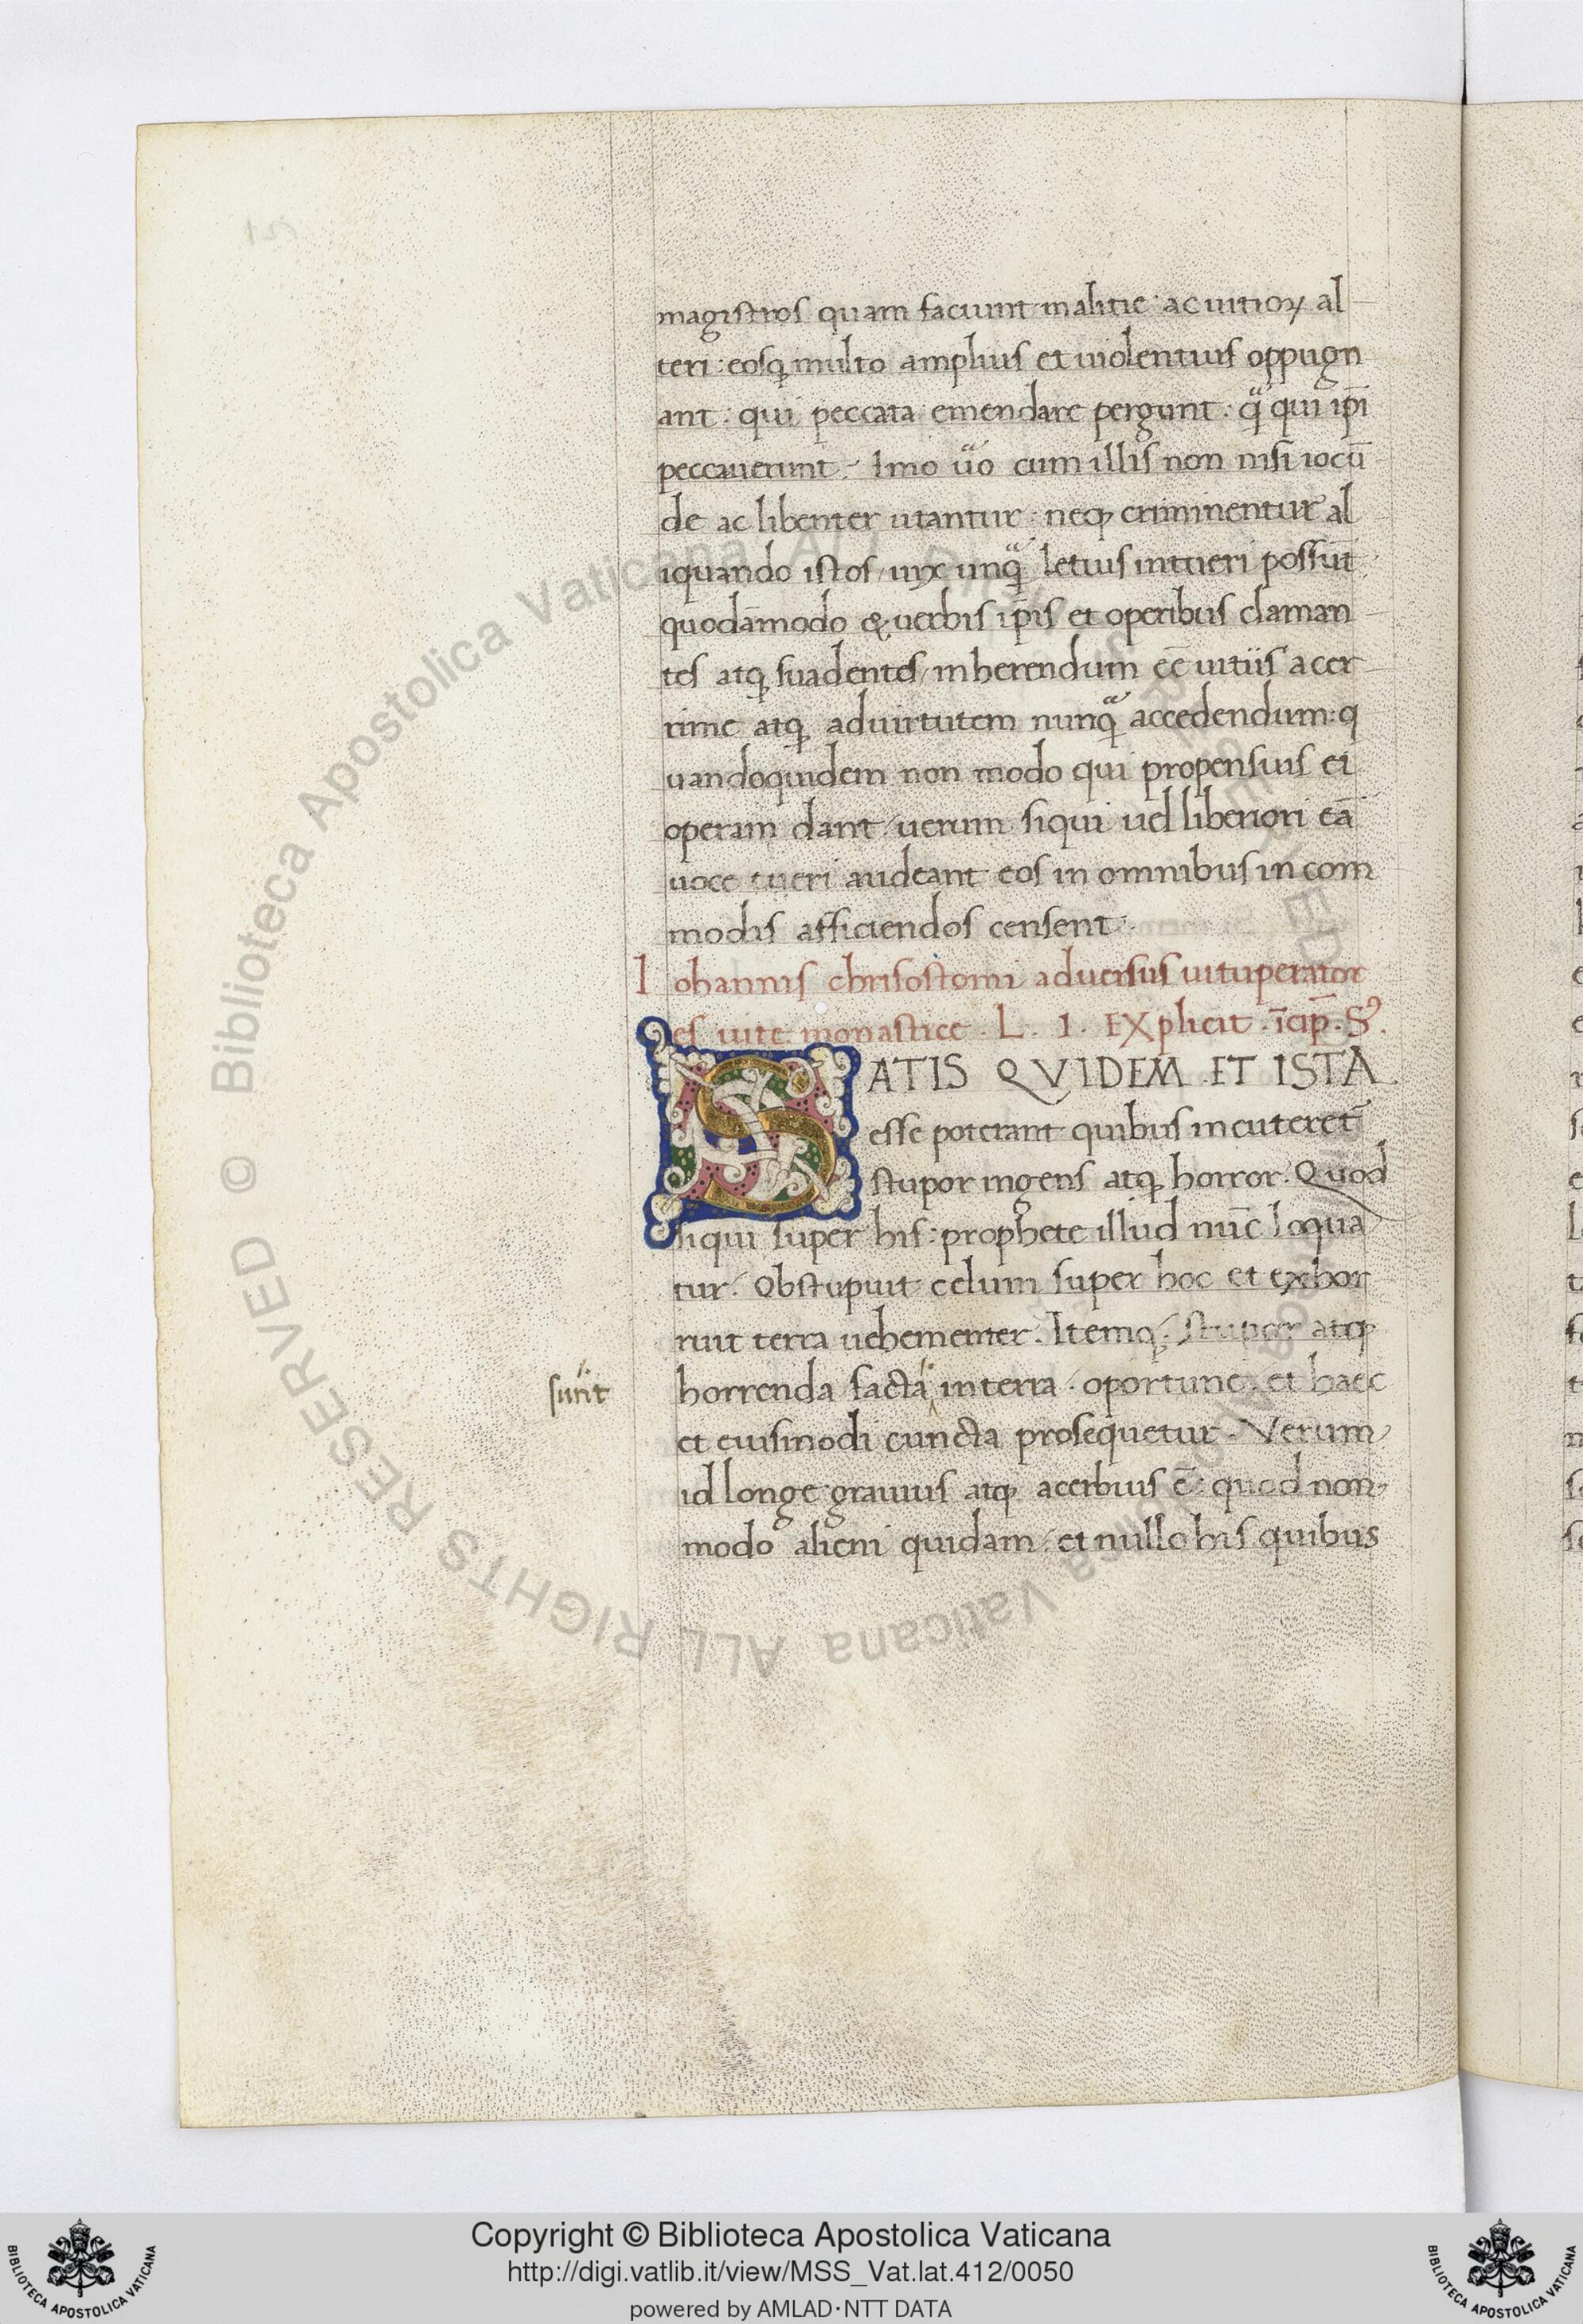 magistros quam faciunt malitie: ac uitioꝝ al
teri: eosq̨ multo amplius et uiolentius oppugn
ant: qui peccata emendare pergunt: qᷓ qui ip̄i
peccauerunt. Imo uͣo cum illis non nisi iocū
de ac libenter utantur: neq̨ criminentur al
iquando istos, uix unqᷓ letius intueri possūt
quodāmodo & uerbis ip̄is et operibus claman
tes atq̨ suadentes, inherendum eē uitiis acer
rime atq̨ aduirtutem nunqᷓ accedendum: q
uandoquidem non modo qui propensius ei
operam dant, uerum siqui uel liberiori eā
uoce tueri audeant eos in omnibus incom
modis afficiendos censent.
Iohannis chrisostomi aduersus uituperator
es uite monastice. L. I. EXplicit. īcip̄. Sꝰ.
SATIS QVIDEM ET ISTA
esse poterant quibus incuteret᷑
stupor ingens atq̨ horror. Quod
siqui super his: prophete illud nūc loqua
tur. Obstupuit celum super hoc et exhor
ruit terra uehementer. Itemq̨. Stupor atq̨
horrenda facta interra. oportune. et haec
sunt
et euismodi cuncta prosequetur. Verum
id longe grauius atq̨ acerbius ē: quod non
modo alieni quidam, et nullo his quibus
Copyright © Biblioteca Apostolica Vaticana
http://digi.vatlib.it/view/MSS_Vat.lat.412/0050
powered by AMLAD·NTT DATA
BIBLIOTECA APOSTOLICA VATICANA
BIBLIOTECA APOSTOLICA VATICANA
Biblioteca Apostolica Vaticana ALL RIGHTS RESERVED ©